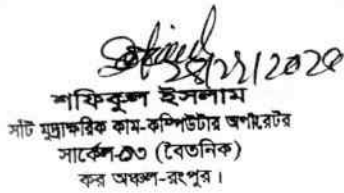 শফিকুল ইসলাম
সাঁট মুদ্রাক্ষরিক কাম-কম্পিউটার অপারেটর
সার্কেল-০৩ (বৈতনিক)
কর অঞ্চল-রংপুর।